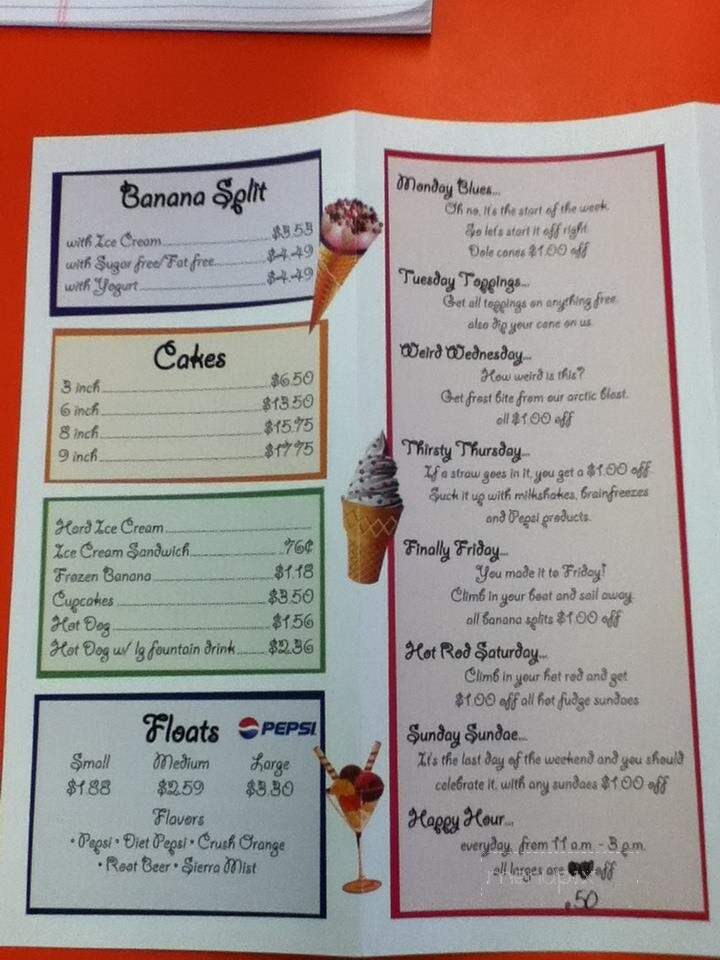 Banana Split
with Ice Cream $3.53
with Sugar free/Fat free $4.49
with Yogurt $4.49
Cakes
3 inch $6.50
6 inch $13.50
8 inch $15.75
9 inch $17.75
Hard Ice Cream
Ice Cream Sandwich 76¢
Frozen Banana $1.18
Cupcakes $3.50
Hot Dog $1.56
Hot Dog w/ lg fountain drink $2.36
Floats PEPSI
Small Medium Large
$1.88 $2.59 $3.30
Flavors
• Pepsi • Diet Pepsi • Crush Orange
• Root Beer • Sierra Mist
Monday Blues...
Oh no, it's the start of the week.
So let's start it off right.
Dole cones $1.00 off
Tuesday Toppings...
Get all toppings on anything free.
also dip your cone on us.
Weird Wednesday...
How weird is this?
Get frost bite from our arctic blast.
all $1.00 off
Thirsty Thursday...
If a straw goes in it, you get a $1.00 off.
Suck it up with milkshakes, brainfreezes
and Pepsi products.
Finally Friday...
You made it to Friday!
Climb in your boat and sail away.
all banana splits $1.00 off
Hot Rod Saturday...
Climb in your hot rod and get
$1.00 off all hot fudge sundaes
Sunday Sundae...
It's the last day of the weekend and you should
celebrate it, with any sundaes $1.00 off
Happy Hour...
everyday, from 11 a.m. - 3 p.m.
all larges are off
.50